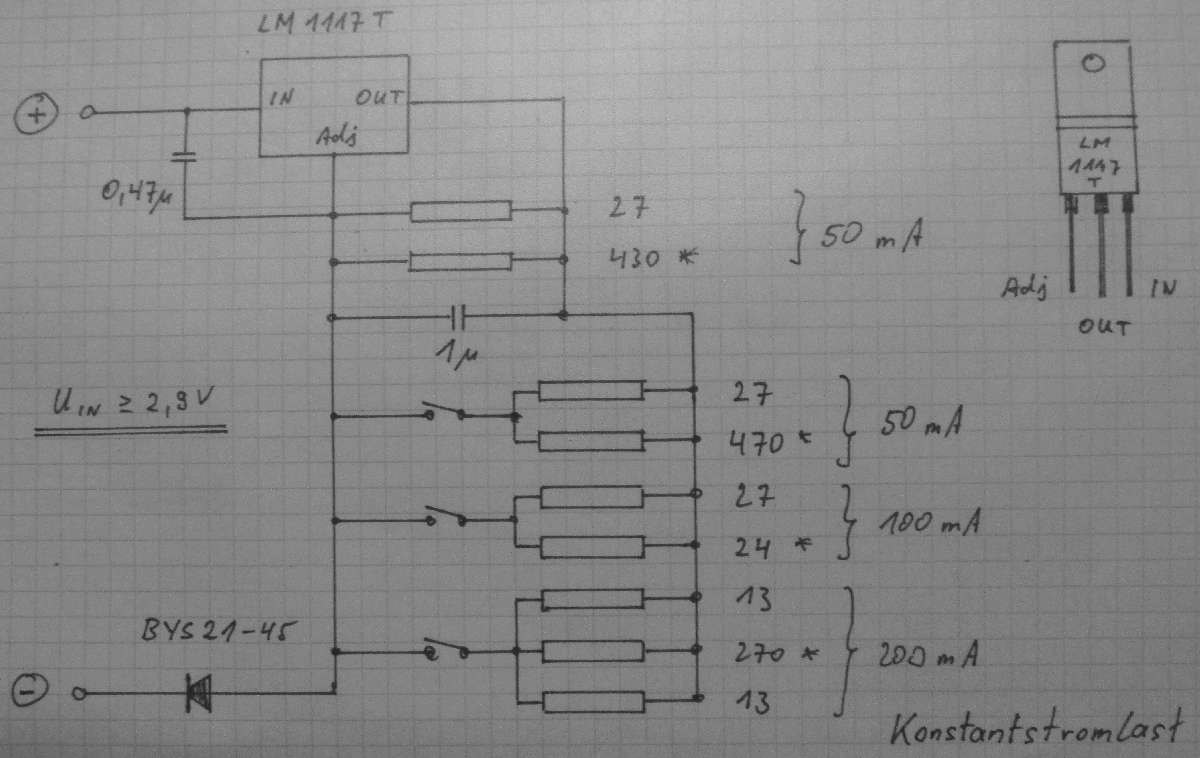 LM 1117 T
+
IN OUT
Adj
0,47µ
27
430 *
50 mA
1µ
LM
1117
T
Adj
IN
OUT
U IN ≥ 2,9 V
27
470 *
50 mA
27
24 *
100 mA
13
270 *
13
200 mA
BYS 21-45
−
Konstantstromlast